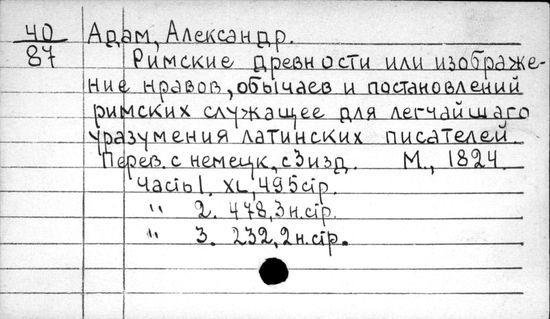 40
87
Адам, Александр.
Римские древности или изображе-
ние нравов, обычаев и постановлений
римских служащее для легчайшаго
уразумения латинских писателей.
Перев. с немецк, с 3 изд. М., 1824.
Часть I. XL, 495 стр.
" 2. 478, 3 н. стр.
" 3. 232, 2 н. стр.